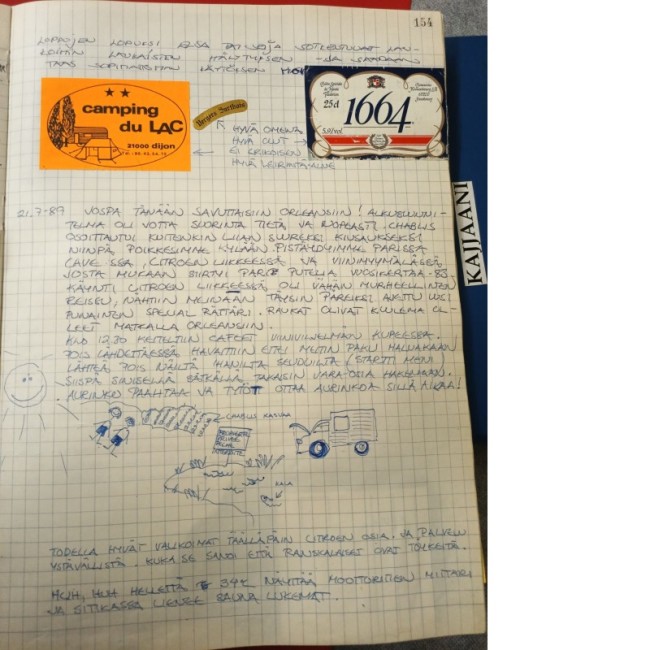 154
LOPPUJEN LOPUKSI
LAUKAISTEN
TAAS SOPIMATTOMAN
camping
du LAC
21000 dijon
25cl
1664
5.9% vol.
HYVÄ OMENA
HYVÄ OLUT →
EI KEIKOISEN
HYVÄ LEIRINTÄALUE
KAJAANI
21.7-89 JOSPA TÄNÄÄN SAVUTTAISIIN ORLEANSIIN! ALKUSUUNNI-
TELMA OLI OTTAA SUORINTA TIETÄ, JA NOPEASTI. CHABLIS
OSOITTAUTUI KUITENKIN LIIAN SUUREKSI KIUSAUKSEKSI
NIINPÄ POIKKESIMME KYLÄÄN PISTÄYDYIMME PARISSA
CAVE:SSA, CITROEN LIIKKEESSÄ JA VIINIMYYMÄLÄSSÄ
JOSTA MUKAAN SIIRTYI PARI PUTELIA VUOSIKERTAA -83.
KÄYNTI CITROEN LIIKKEESSÄ OLI VÄHÄN MURHEELLINEN
REISSU, NÄHTIIN MEINAAN TÄYSIN PAREIKSI AJETTU UUSI
PUNAINEN SPECIAL RÄTTÄRI. RAUKAT OLIVAT KUULEMA OL-
LEET MATKALLA ORLEANSIIN.
KLO 12.30 KEITELTIIN CAFEET VIINIVILJELMÄN KUPEESSA.
POIS LÄHDETTÄESSÄ HAVAITTIIN ETTEI MEITIN PAKU HALUAKAAN
LÄHTEÄ POIS NÄILTÄ IHANILTA SEUDUILTA (STARTTI MENI
SIISPÄ SINISELLÄ SÄTKÄLLÄ TAKAISIN VARA-OSIA HAKEMAAN.
AURINKO PAAHTAA JA TYTÖT OTTAA AURINKOA SILLÄ AIKAA!
CHABLIS KASVAA
KALA
TODELLA HYVÄT VALIKOIMAT TÄÄLLÄPÄIN CITROEN OSIA. JA PALVELU
YSTÄVÄLLISTÄ. KUKA SE SANOI ETTÄ RANSKALAISET OVAT TÖLKEITÄ.
HUH, HUH HELLETTÄ 34°C NÄYTTÄÄ MOOTTORITIEN MITTARI
JA SITIKASSA LIENEE SAUNA LUKEMAT.